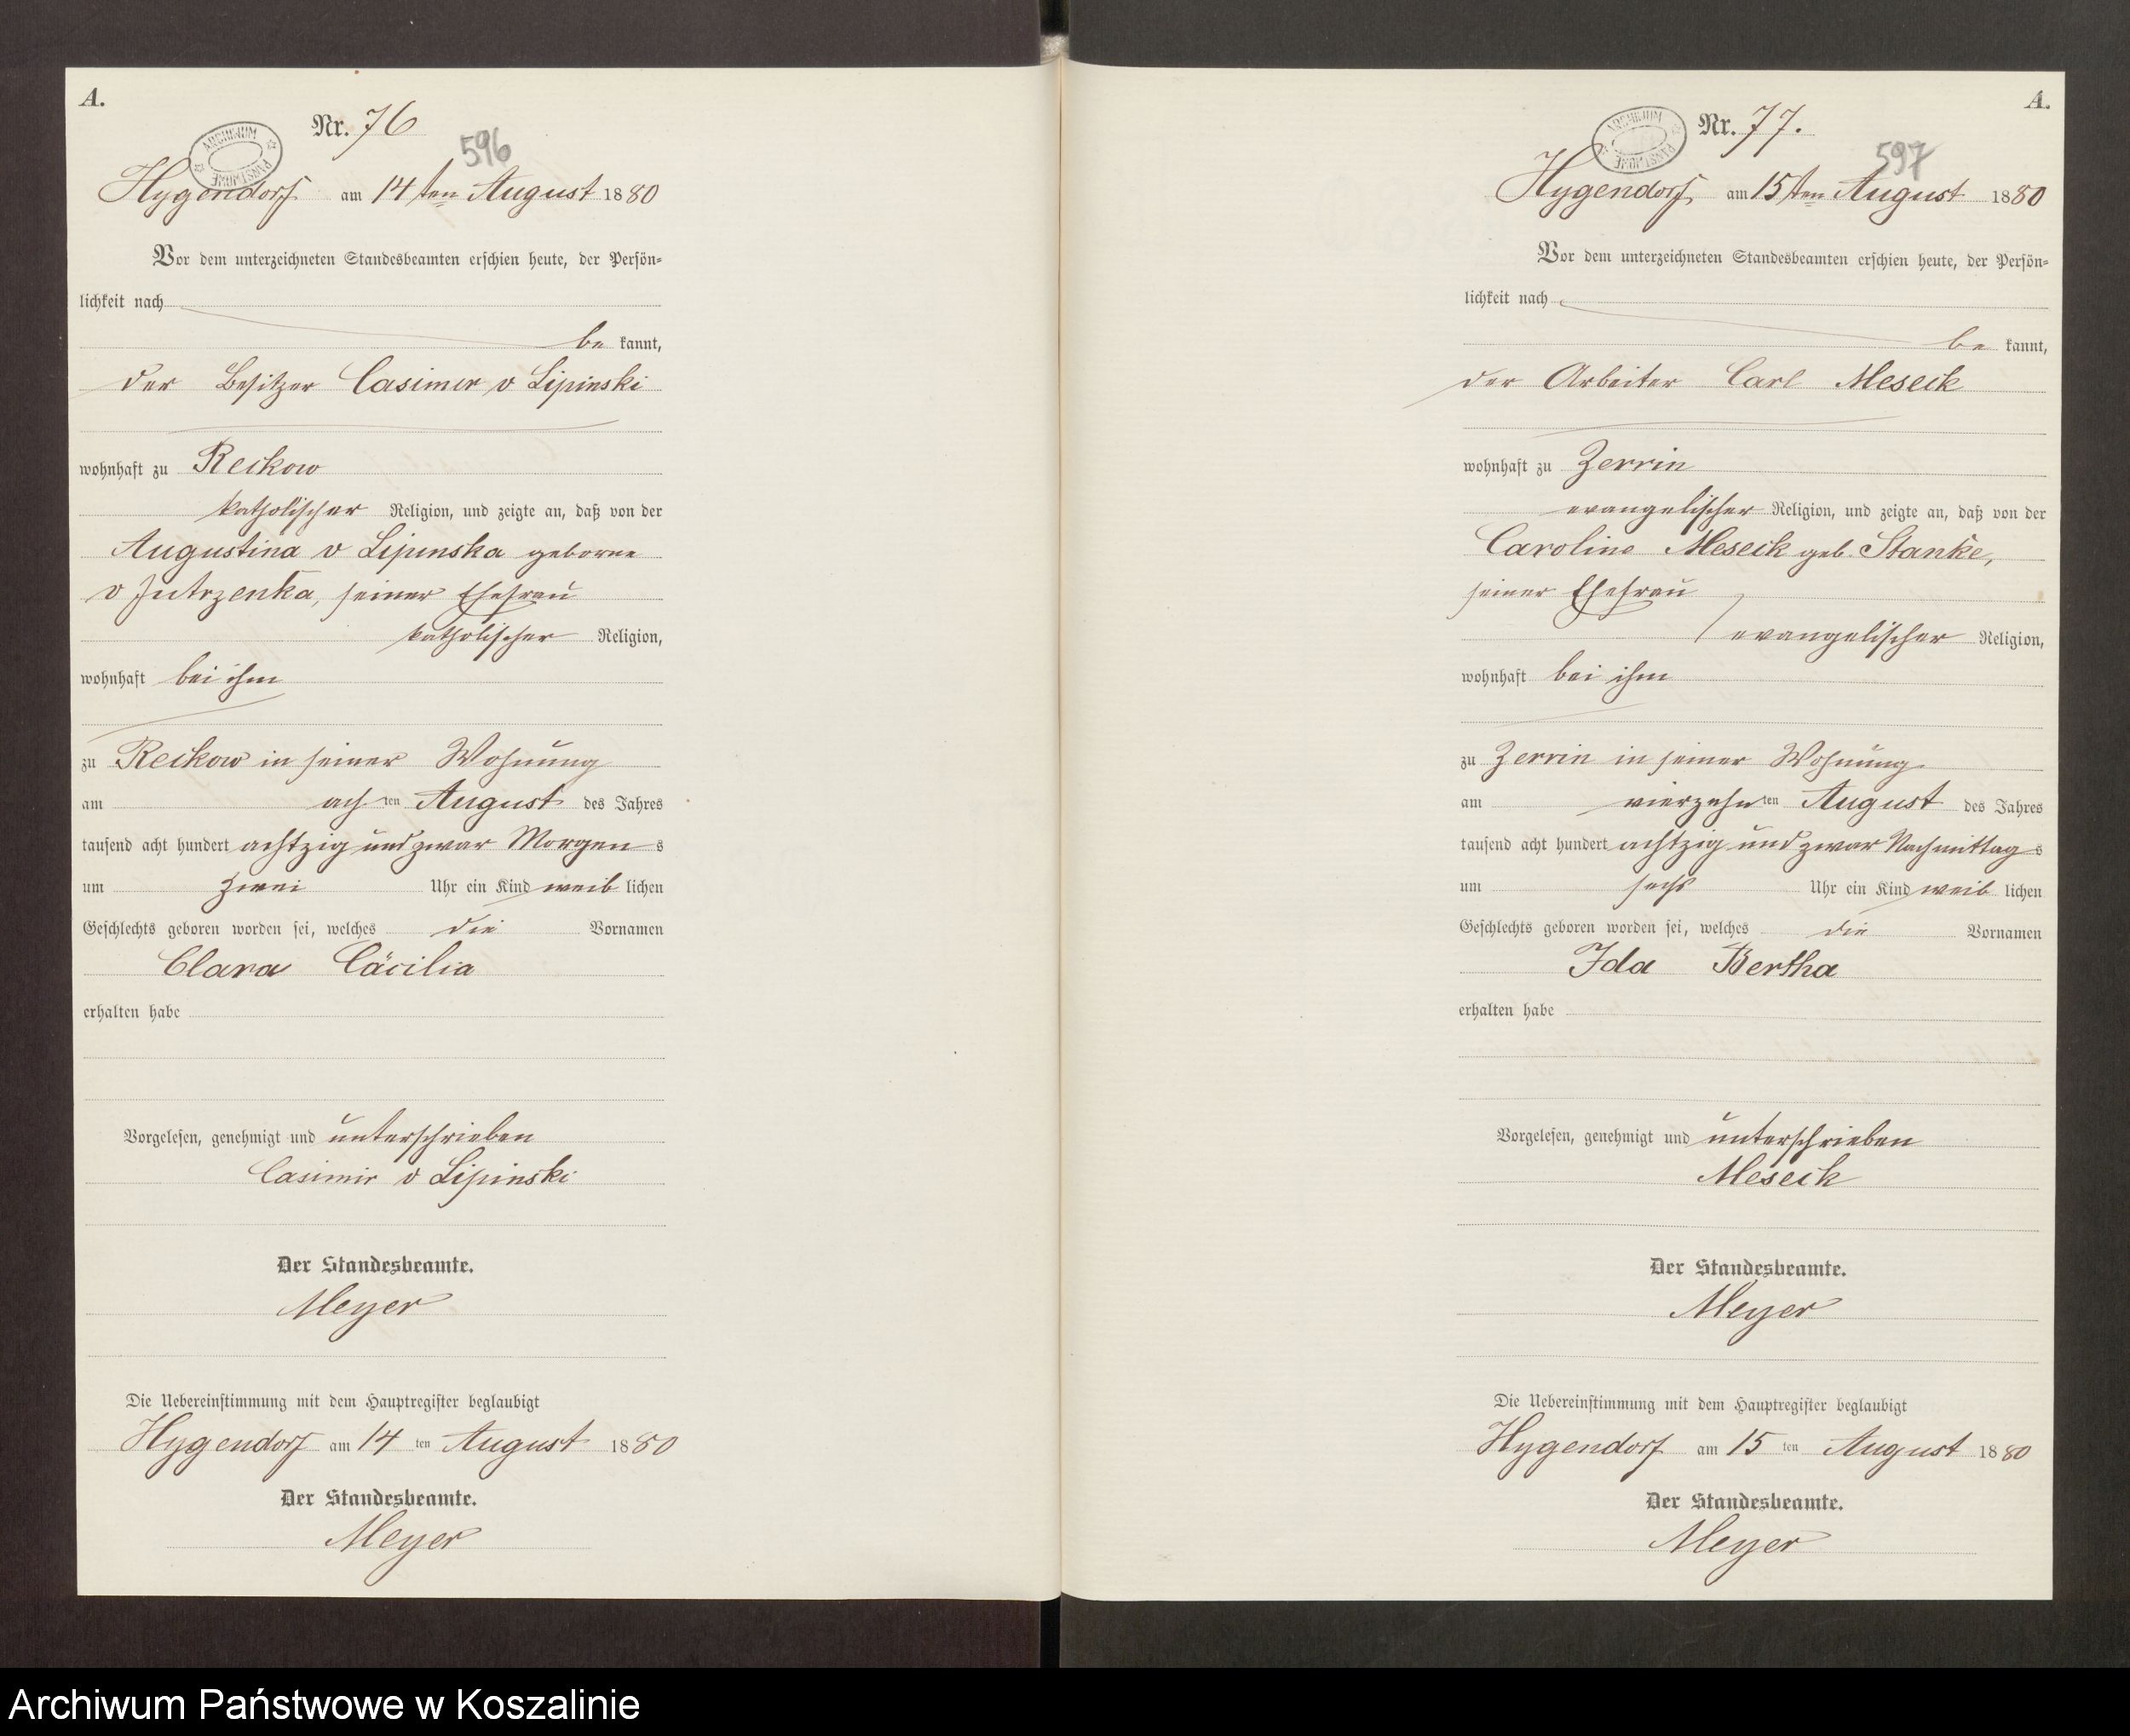 A.
Nr. 76
ARCHIWUM PAŃSTWOWE
596
Hygendorf am 14ten August 1880
Vor dem unterzeichneten Standesbeamten erschien heute, der Persön-
lichkeit nach
be kannt,
der Besitzer Casimir v Lipinski
wohnhaft zu Reckow
katholischer Religion, und zeigte an, daß von der
Augustina v Lipinska geborne
v Jutrzenka, seiner Ehefrau
katholischer Religion,
wohnhaft bei ihm
zu Reckow in seiner Wohnung
am achten August des Jahres
tausend acht hundert achtzig und zwar Morgens
um zwei Uhr ein Kind weiblichen
Geschlechts geboren worden sei, welches die Vornamen
Clara Cäcilia
erhalten habe
Vorgelesen, genehmigt und unterschrieben
Casimir v Lipinski
Der Standesbeamte.
Meyer
Die Uebereinstimmung mit dem Hauptregister beglaubigt
Hygendorf am 14ten August 1880
Der Standesbeamte.
Meyer
A.
Nr. 77.
ARCHIWUM PAŃSTWOWE
597
Hygendorf, am 15ten August 1880
Vor dem unterzeichneten Standesbeamten erschien heute, der Persön-
lichkeit nach
be kannt,
der Arbeiter Carl Meseck
wohnhaft zu Zerrin
evangelischer Religion, und zeigte an, daß von der
Caroline Meseck geb. Stanke,
seiner Ehefrau
evangelischer Religion,
wohnhaft bei ihm
zu Zerrin in seiner Wohnung
am vierzehnten August des Jahres
tausend acht hundert achtzig und zwar Nachmittags
um sechs Uhr ein Kind weiblichen
Geschlechts geboren worden sei, welches die Vornamen
Ida Bertha
erhalten habe
Vorgelesen, genehmigt und unterschrieben
Meseck
Der Standesbeamte.
Meyer
Die Uebereinstimmung mit dem Hauptregister beglaubigt
Hygendorf am 15ten August 1880
Der Standesbeamte.
Meyer
Archiwum Państwowe w Koszalinie